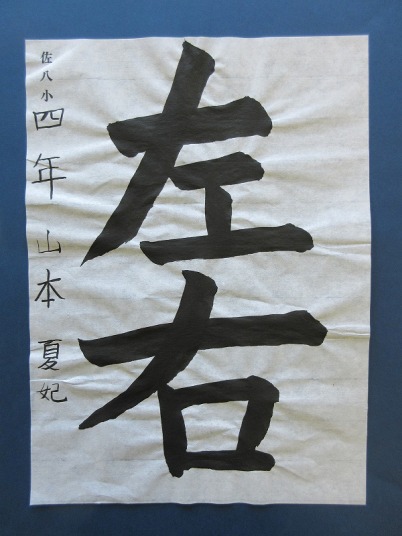 左右
佐八小 四年 山本 夏妃